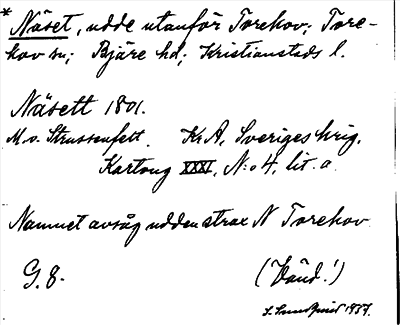 * Näset, udde utanför Torekov; Tore-
kov sn; Bjäre hd; Kristianstads l.
Näsett 1801.
M. v. Strussenfelt. KrA, Sveriges krig,
Kartong XXXI, N:o 4, lit. a.
Namnet avsåg udden strax N Torekov
G. 8. (Vänd!)
S. Lundquist 1937.